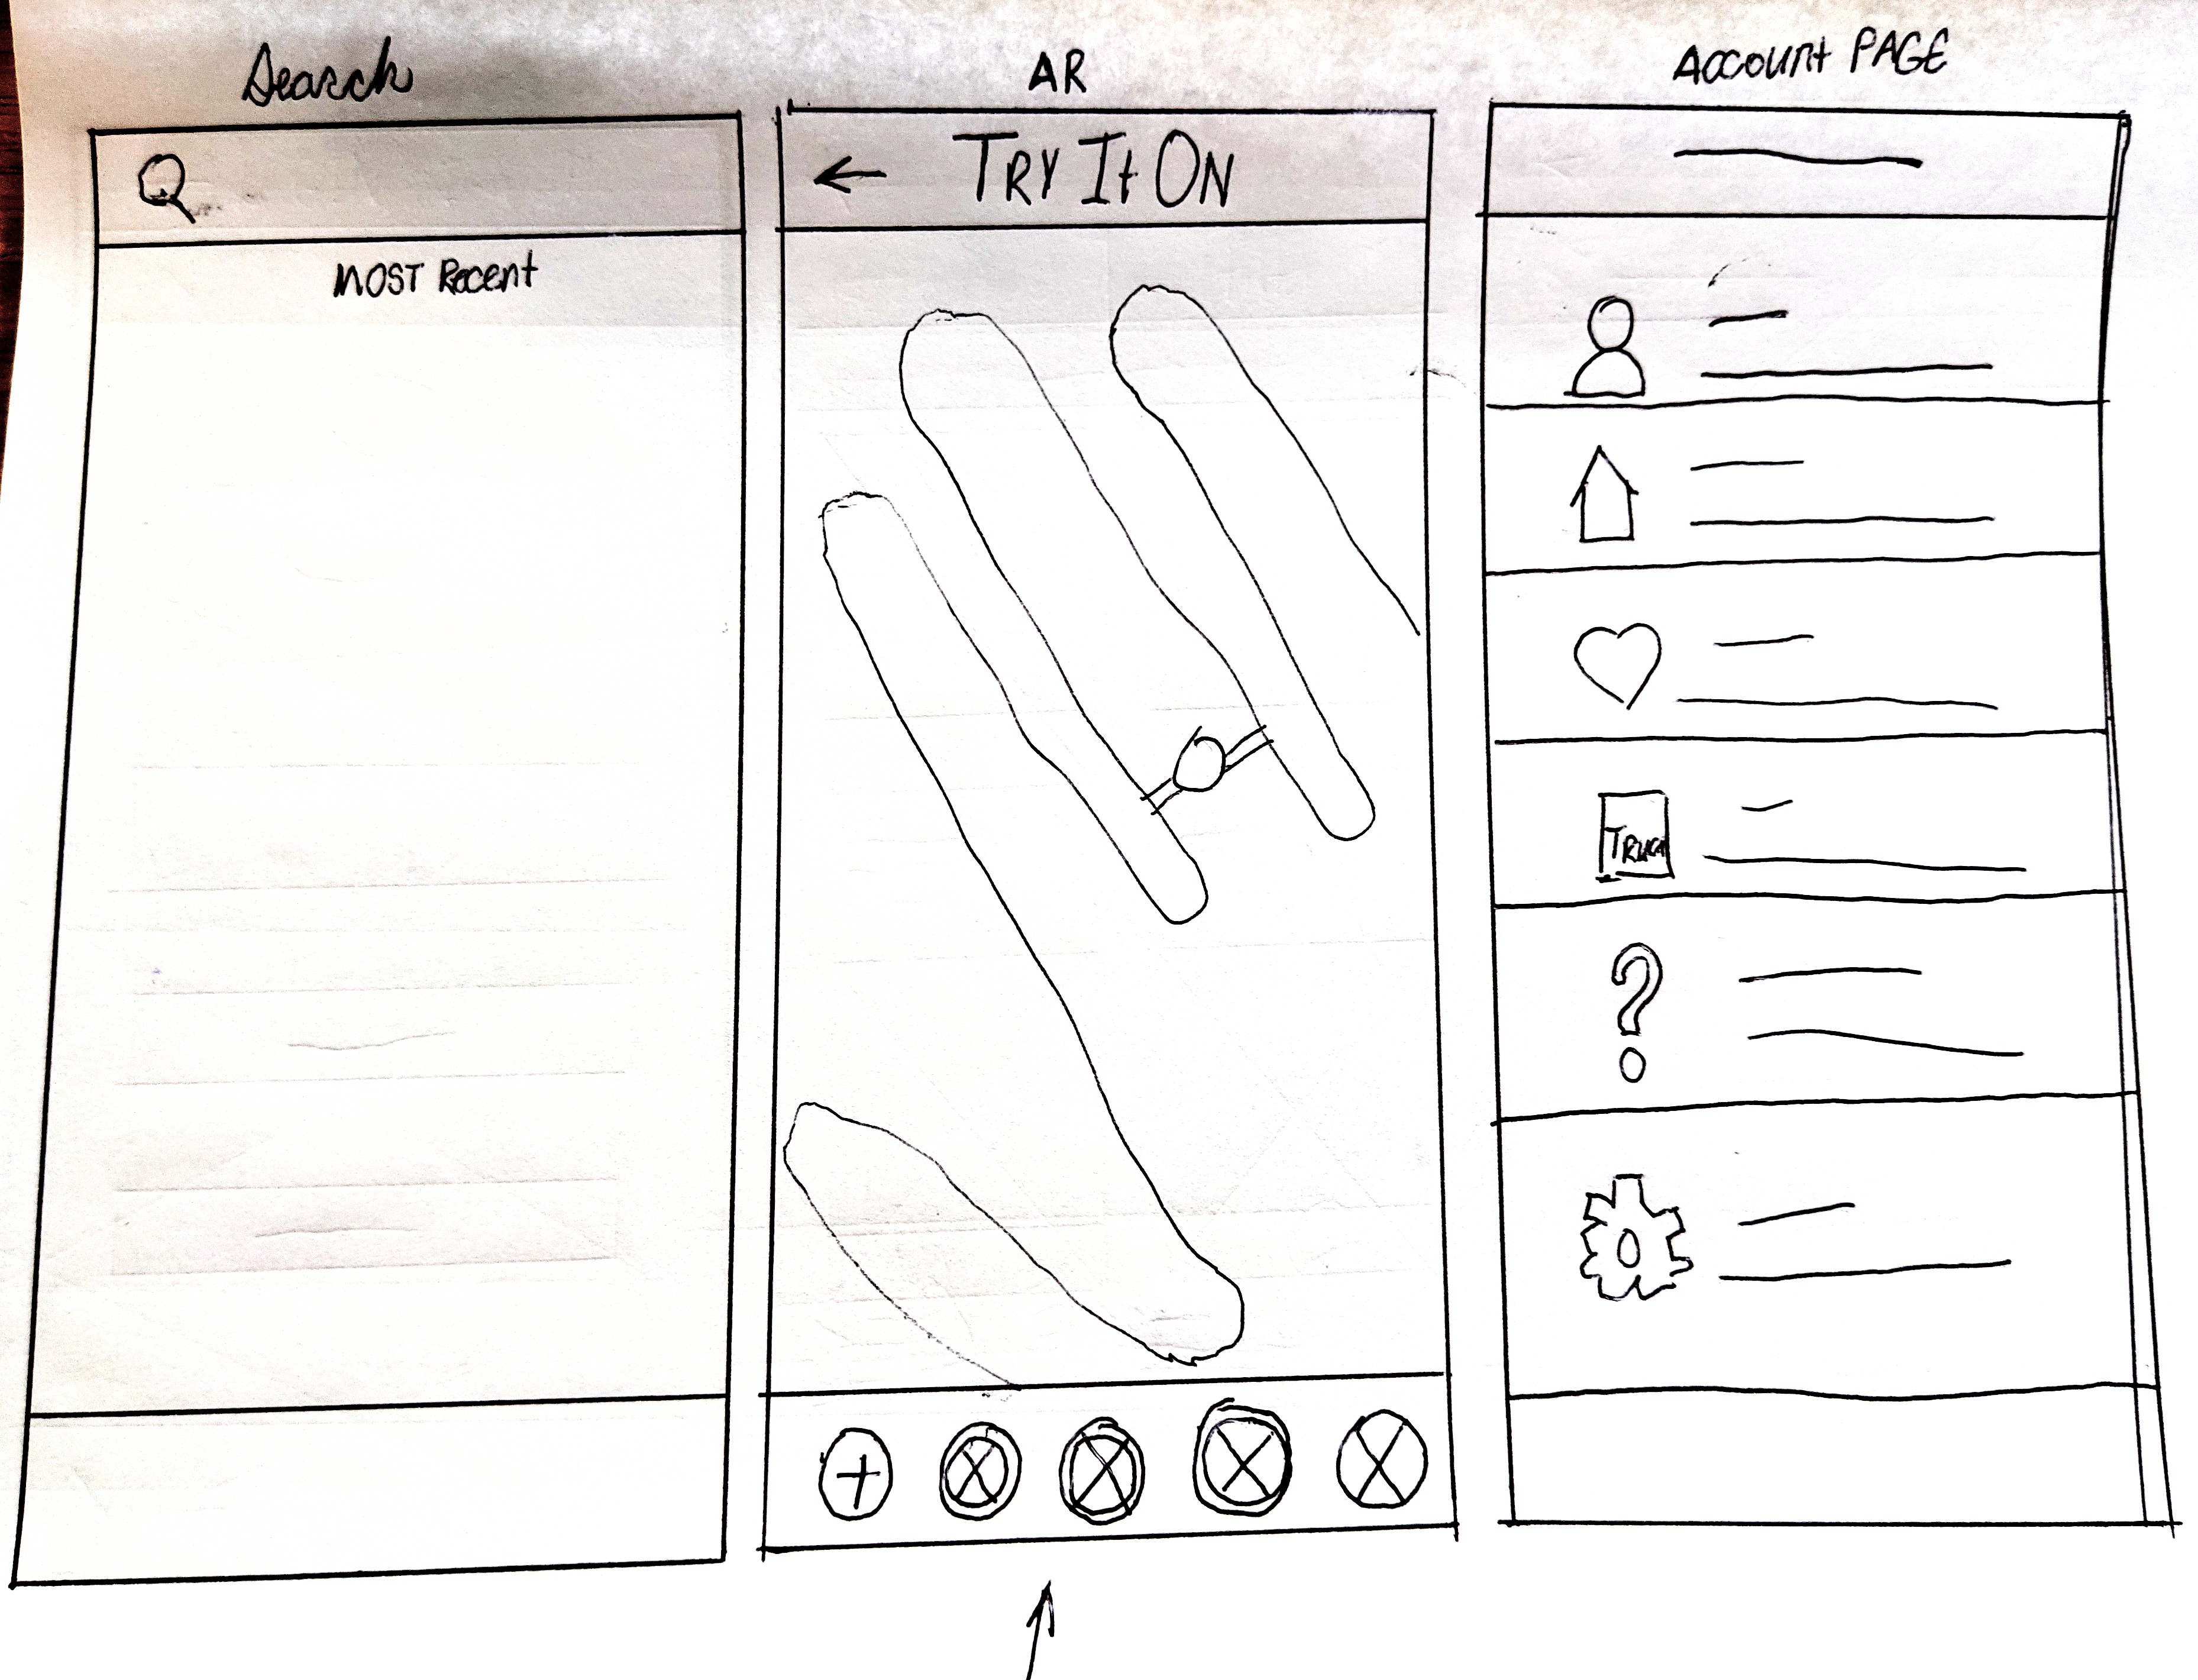 Search
MOST Recent
AR
TRY It ON
Account PAGE
TRUCK